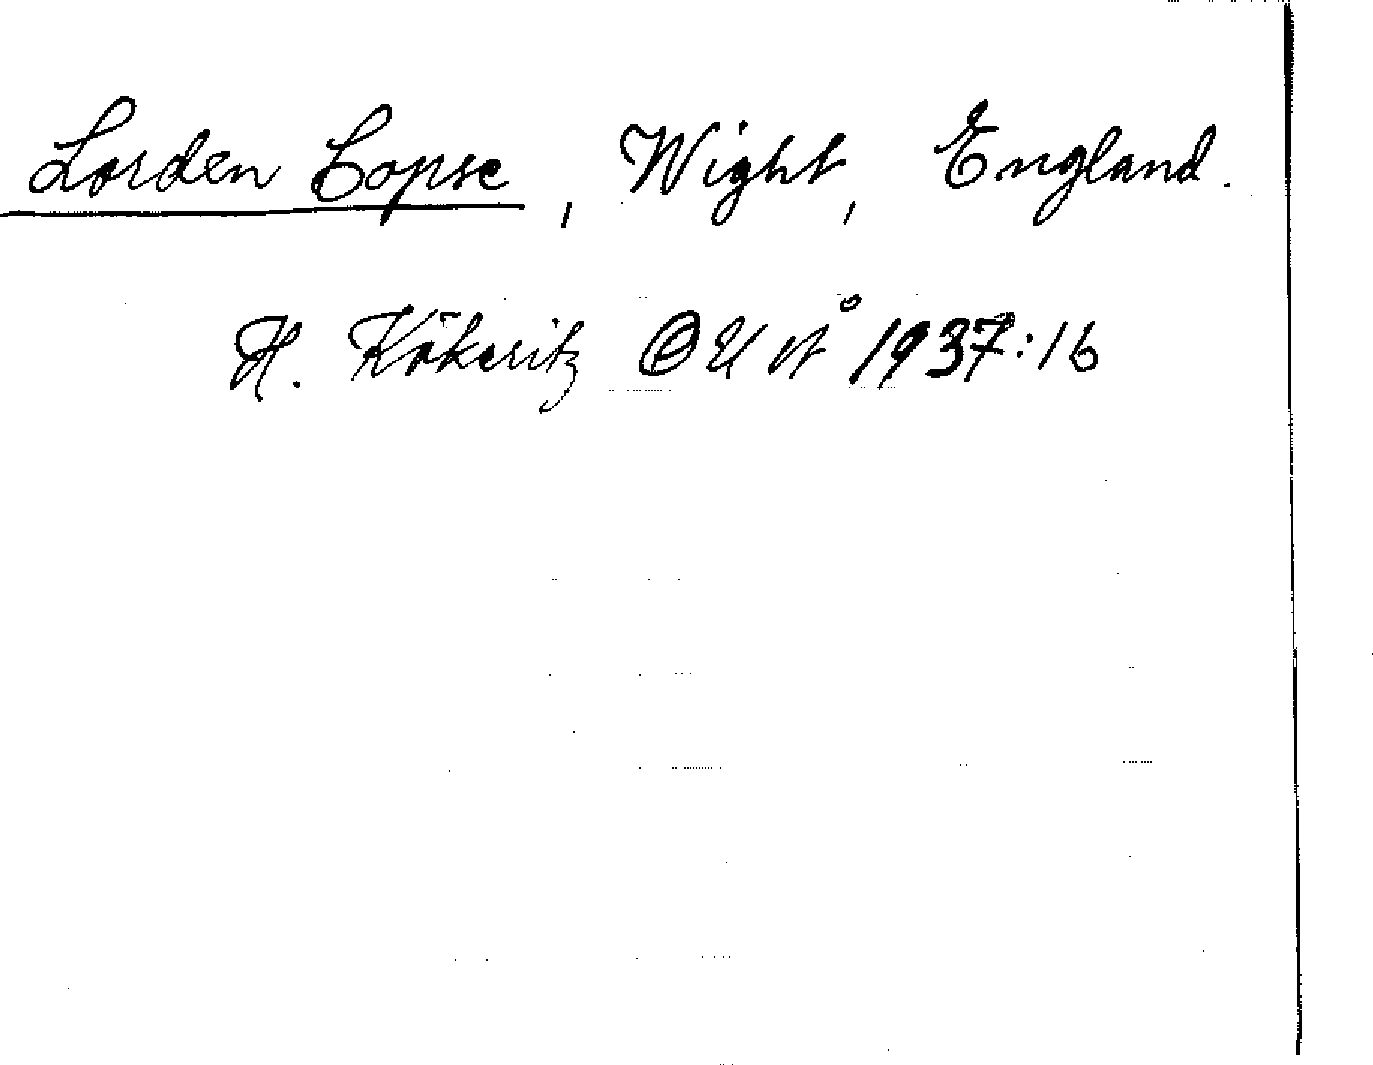 Lorden Copse, Wight, England.
H. Kökeritz UUÅ 1937:16